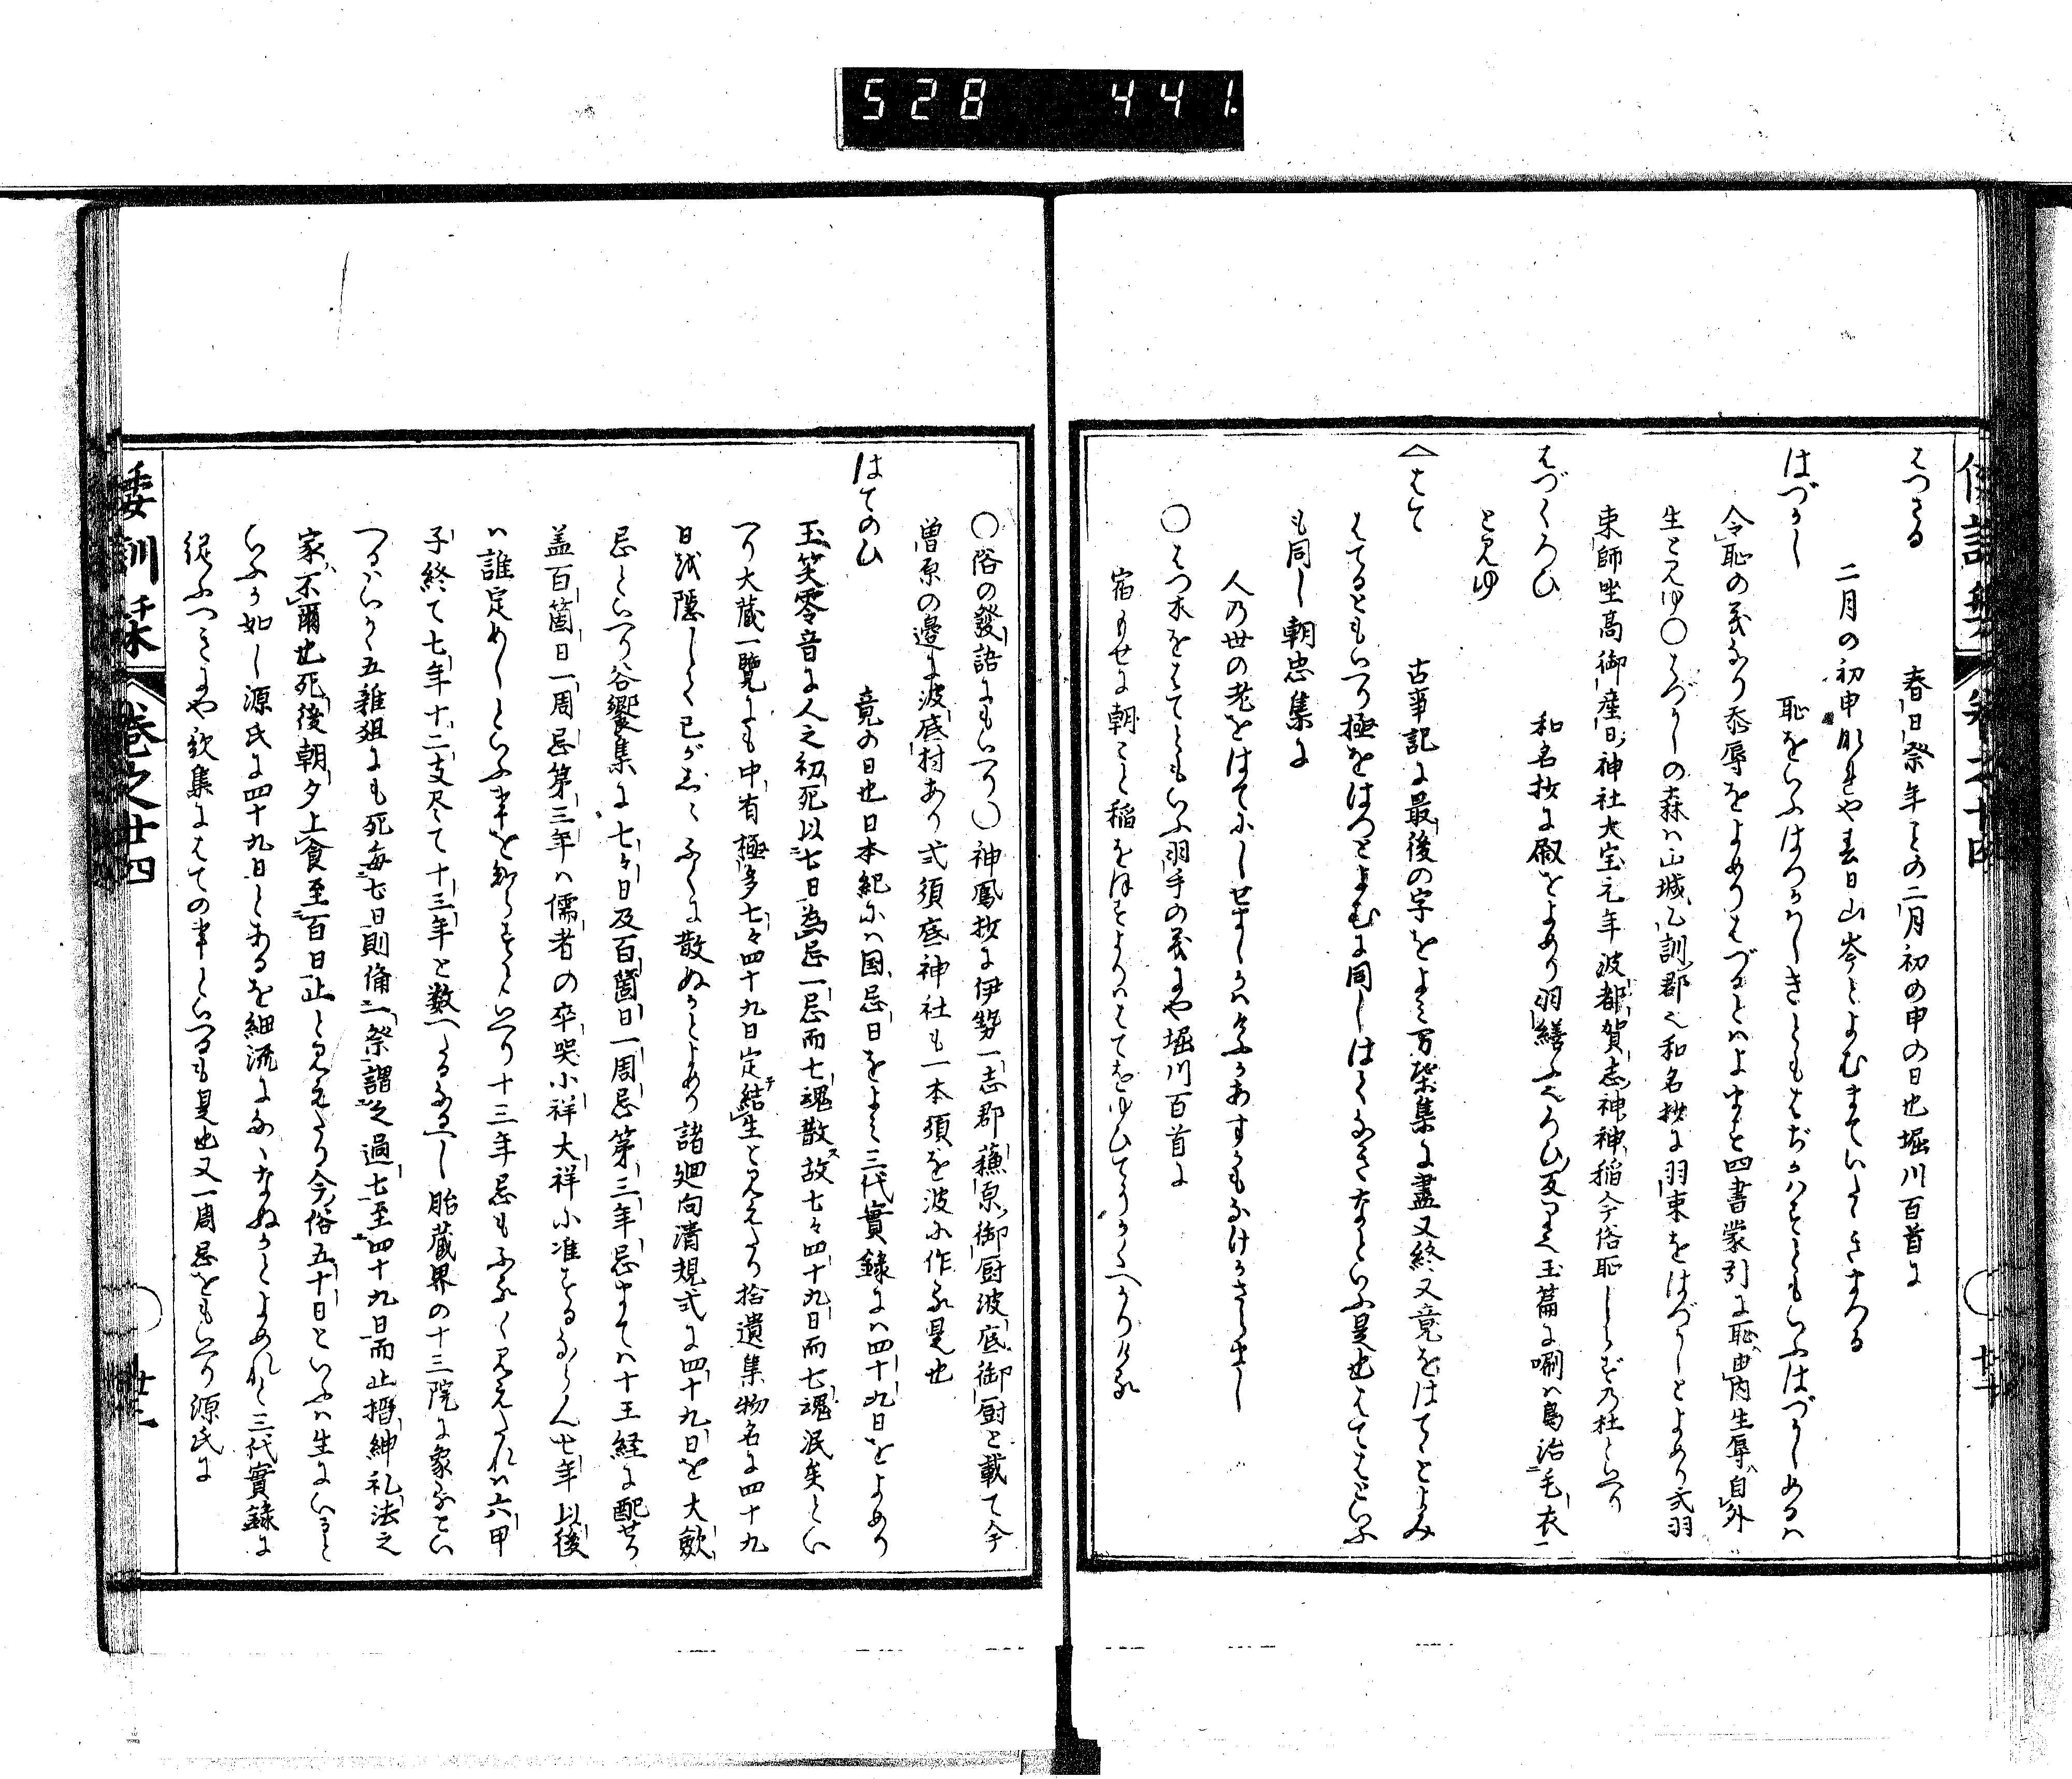 528 441
はつさる 春日祭年ごとの二月初の申の日也堀川百首に
二月の初申なれや春日山峯とよむまていたゝきまつる
はづかし 恥をいふはつかしきともはぢかはすともいふはづかしめるハ
令恥の義なり忝辱をよめりはづるとハよます四書蒙引に恥由内生辱自外
生と見ゆ○はづかしの森ハ山城乙訓郡也和名抄に羽束をはづかしとよめり式羽
束師坐高御産日神社大宝元年波都賀志神神稲今俗恥しらずの社といへり
はづくろひ 和名抄に㕞をよめり羽繕ふくろひ反り也玉篇に唰ハ鳥治毛衣
と見ゆ
はて 古事記に最後の字をよミ万葉集に盡又終又竟をはてゝとよみ
はてるともいへり極をはつとよむに同しはてなきなといふ是也はてはてといふ
も同し朝忠集に
人乃世の老をはてにしせましかハけふかあすかもなけかさらまし
○はつ木をはてともいふ羽手の義にや堀川百首に
宿もせに朝こと稲をほすよりハはてをゆひてそかくへかりける
○俗の發語にもいへり○神鳳抄に伊勢一志郡蘓原御厨波底御厨と載て今
曽原の邊に波底村あり式須底神社も一本須を波に作る是也
はてのひ 竟の日也日本紀にハ国忌日をよミ三代實録にハ四十九日をよめり
玉笑零音に人之初死以七日為忌一忌而七魂散故七々四十九日而七魂泯矣とい
へり大蔵一覧にも中有極多七々四十九日定結生と見えたり拾遺集物名に四十九
日我隠して己が志ゝふくに散ぬかとよめり諸廻向清規式に四十九日を大歛
忌といへり谷響集に七々日及百箇日一周忌第三年忌まてハ十王経に配せり
盖百箇日一周忌第三年ハ儒者の卒哭小祥大祥に准するならん七年以後
ハ誰定めしといふ事を知らすといへり十三年忌もふるく見えたれハ六甲
子終て七年十二支尽て十三年と数へたるなるへし胎蔵界の十三院に象るとい
へるハいかゝ五雑俎にも死毎七日則備一祭謂之過七至四十九日而止搢紳礼法之
家不爾也死後朝夕上食至百日止と見えたり今俗五十日といふハ生にいみと
いふか如し源氏に四十九日とあるを細流になゝなぬかとよめれと三代實録に
従ふへきにや歌集にはての事といへるも是也又一周忌をもいへり源氏に
倭訓栞 巻之廿四